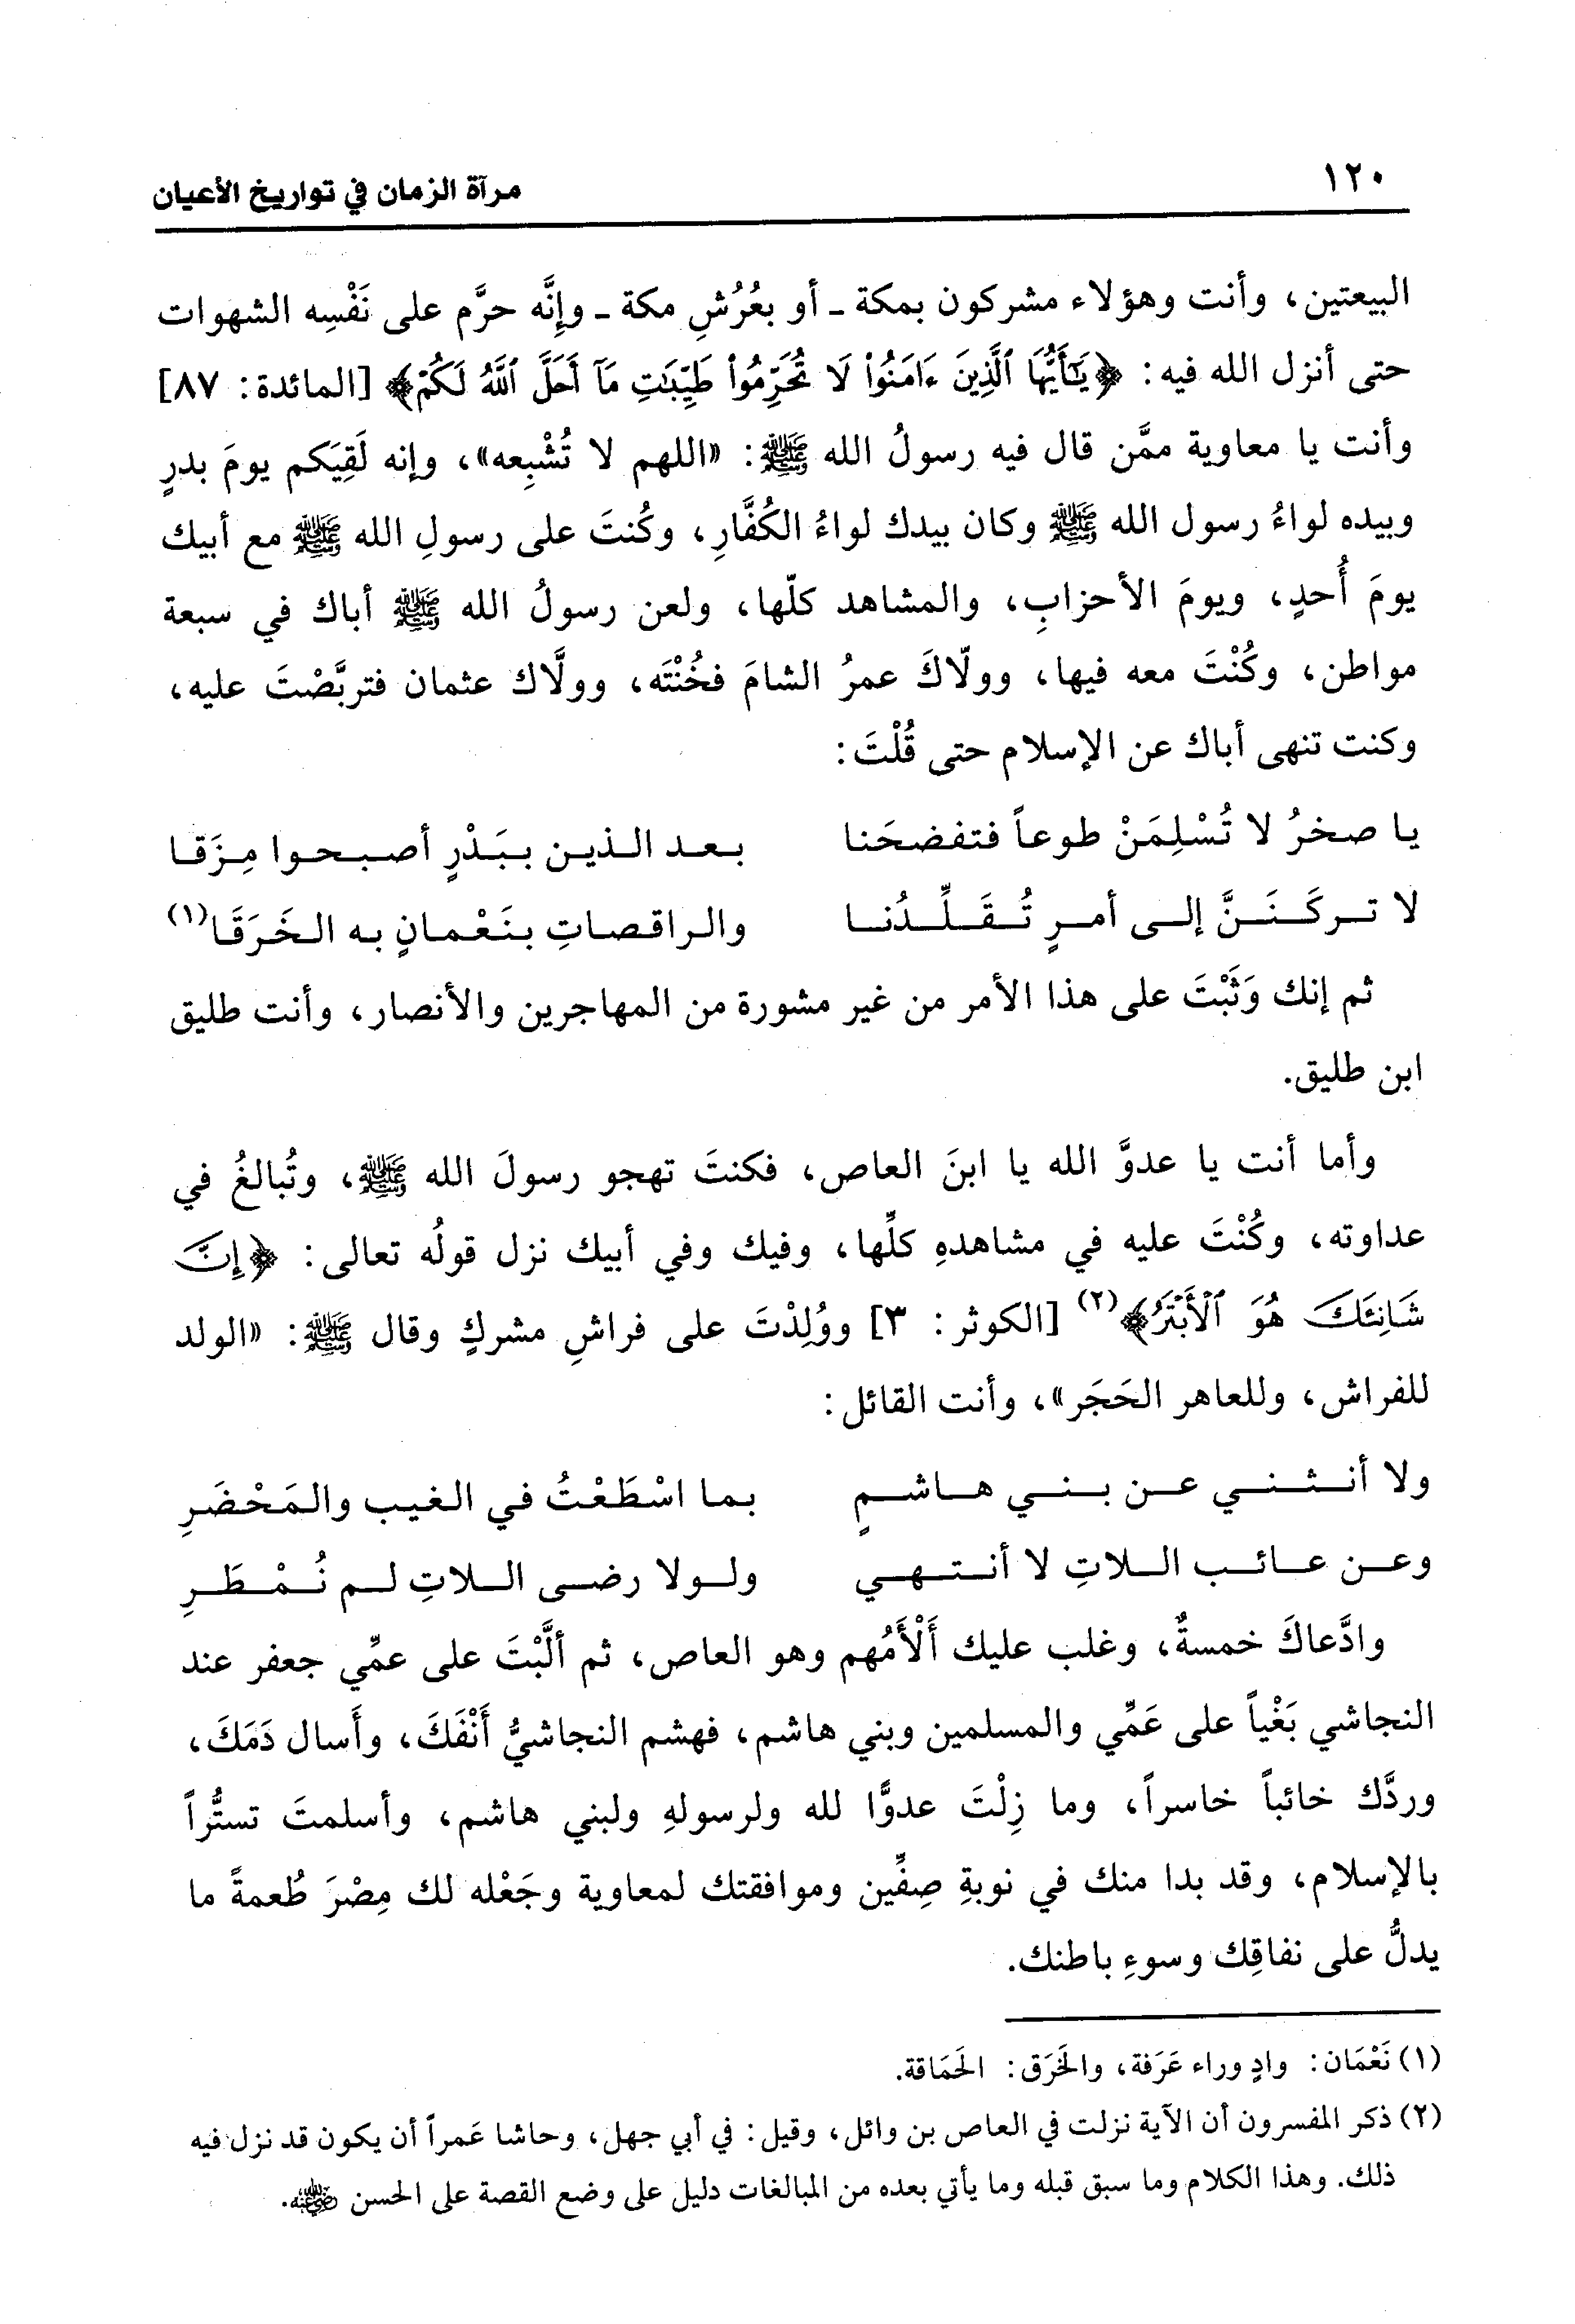 ١٢٠
مرآة الزمان في تواريخ الأعيان
البيعتين، وأنت وهؤلاء مشركون بمكة ـ أو بعُرُشِ مكة ـ وإنَّه حرَّم على نَفْسِه الشهوات
حتى أنزل الله فيه: ﴿يَٰٓأَيُّهَا ٱلَّذِينَ ءَامَنُوا۟ لَا تُحَرِّمُوا۟ طَيِّبَٰتِ مَآ أَحَلَّ ٱللَّهُ لَكُمْ﴾ [المائدة: ٨٧]
وأنت يا معاوية ممَّن قال فيه رسولُ الله ﷺ: «اللهم لا تُشْبِعه»، وإنه لَقِيَكم يومَ بدرٍ
وبيده لواءُ رسول الله ﷺ وكان بيدك لواءُ الكُفَّارِ، وكُنتَ على رسولِ الله ﷺ مع أبيك
يومَ أُحدٍ، ويومَ الأحزابِ، والمشاهد كلّها، ولعن رسولُ الله ﷺ أباك في سبعة
مواطن، وكُنْتَ معه فيها، وولّاكَ عمرُ الشامَ فخُنْتَه، وولَّاك عثمان فتربَّصْتَ عليه،
وكنت تنهى أباك عن الإسلام حتى قُلْتَ:
يا صخرُ لا تُسْلِمَنْ طوعاً فتفضحَنا بعد الذين ببَدْرٍ أصبحوا مِزَقا
لا تركَنَنَّ إلى أمرٍ تُقَلِّدُنا والراقصاتِ بنَعْمانٍ به الخَرَقَا(١)
ثم إنك وَثَبْتَ على هذا الأمر من غير مشورة من المهاجرين والأنصار، وأنت طليق
ابن طليق.
وأما أنت يا عدوَّ الله يا ابنَ العاص، فكنتَ تهجو رسولَ الله ﷺ، وتُبالغُ في
عداوته، وكُنْتَ عليه في مشاهدهِ كلِّها، وفيك وفي أبيك نزل قولُه تعالى: ﴿إِنَّ
شَانِئَكَ هُوَ ٱلْأَبْتَرُ﴾(٢) [الكوثر: ٣] ووُلِدْتَ على فراشِ مشركٍ وقال ﷺ: «الولد
للفراش، وللعاهر الحَجَر»، وأنت القائل:
ولا أنثني عن بني هاشمٍ بما اسْطَعْتُ في الغيب والمَحْضَرِ
وعن عائب اللاتِ لا أنتهي ولولا رضى اللاتِ لم نُمْطَرِ
وادَّعاكَ خمسةٌ، وغلب عليك أَلْأَمُهم وهو العاص، ثم ألَّبْتَ على عمِّي جعفر عند
النجاشي بَغْياً على عَمِّي والمسلمين وبني هاشم، فهشم النجاشيُّ أَنْفَكَ، وأَسال دَمَكَ،
وردَّك خائباً خاسراً، وما زِلْتَ عدوًّا لله ولرسولهِ ولبني هاشم، وأسلمتَ تستُّراً
بالإسلام، وقد بدا منك في نوبةِ صِفِّين وموافقتك لمعاوية وجَعْله لك مِصْرَ طُعمةً ما
يدلُّ على نفاقِك وسوءِ باطنك.
(١) نَعْمَان: وادٍ وراء عَرَفة، والخَرَق: الحَمَاقة.
(٢) ذكر المفسرون أن الآية نزلت في العاص بن وائل، وقيل: في أبي جهل، وحاشا عَمراً أن يكون قد نزل فيه
ذلك. وهذا الكلام وما سبق قبله وما يأتي بعده من المبالغات دليل على وضع القصة على الحسن رضي الله عنه.